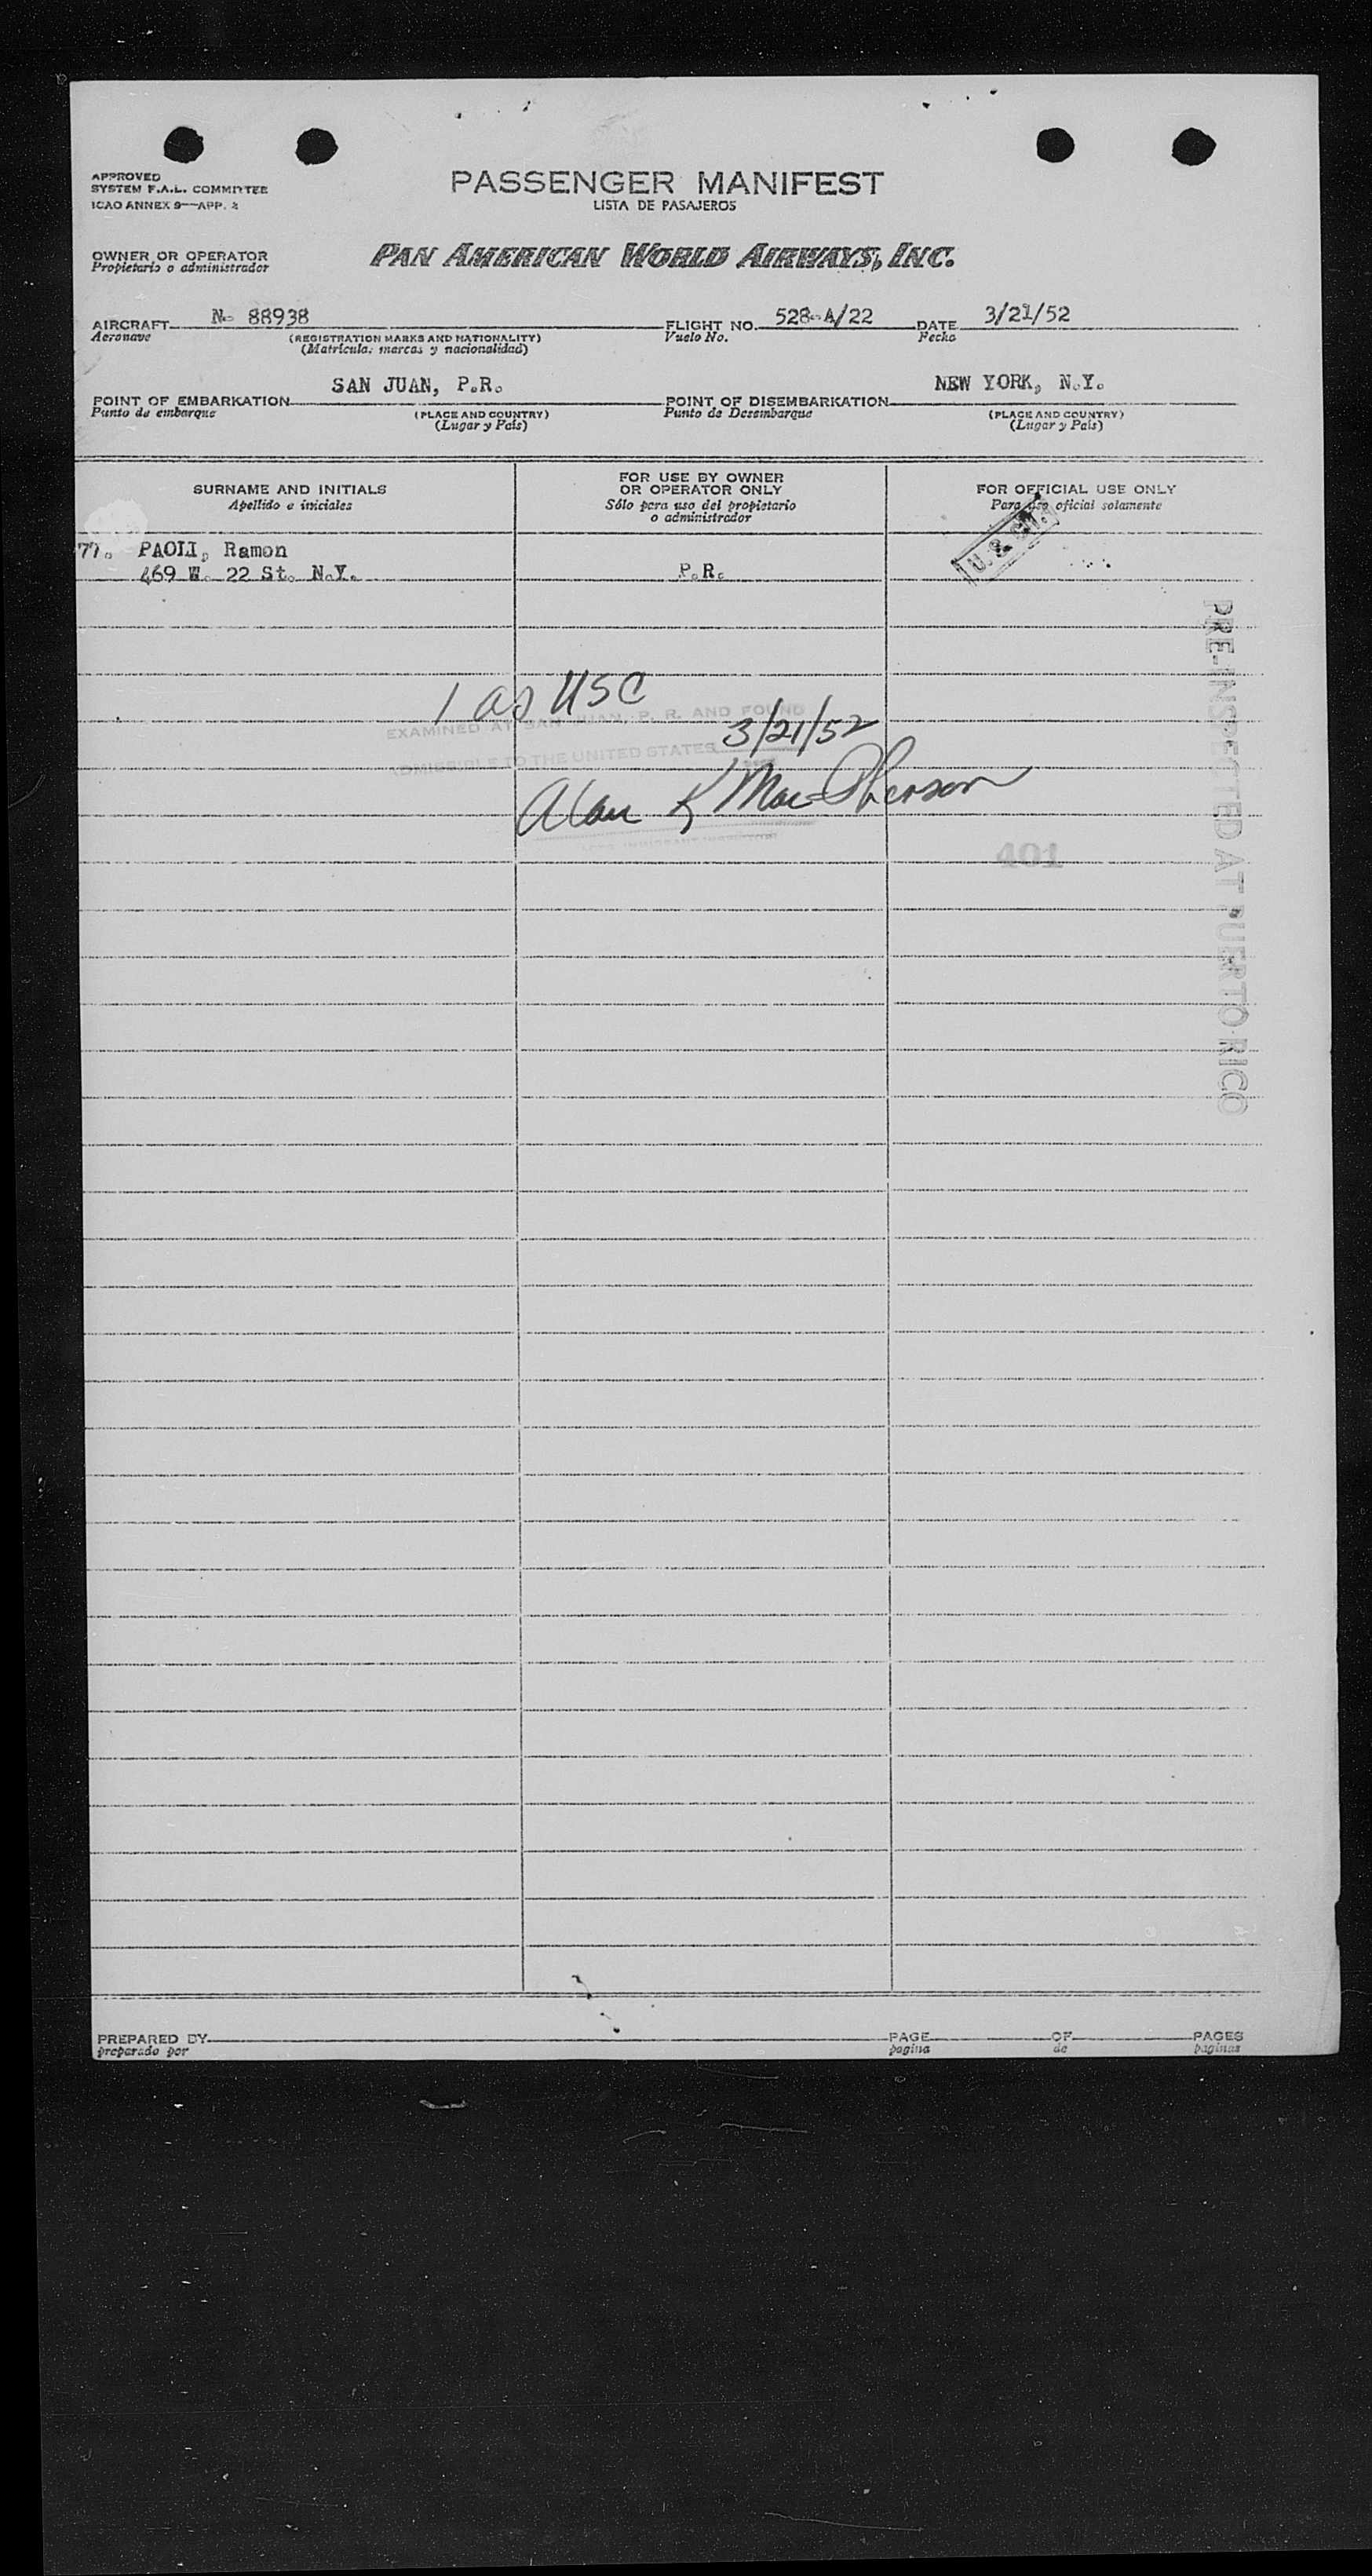 APPROVED
SYSTEM F.A.L. COMMITTEE
ICAO ANNEX 9—APP. 2
PASSENGER MANIFEST
LISTA DE PASAJEROS
OWNER OR OPERATOR
Propietario o administrador
PAN AMERICAN WORLD AIRWAYS, INC.
AIRCRAFT N- 88938 FLIGHT NO. 528-A/22 DATE 3/21/52
Aeronave (REGISTRATION MARKS AND NATIONALITY) Vuelo No. Fecha
(Matrícula, marcas y nacionalidad)
POINT OF EMBARKATION SAN JUAN, P.R. POINT OF DISEMBARKATION NEW YORK, N.Y.
Punto de embarque (PLACE AND COUNTRY) Punto de Desembarque (PLACE AND COUNTRY)
(Lugar y País) (Lugar y País)
SURNAME AND INITIALS
Apellido e iniciales
FOR USE BY OWNER
OR OPERATOR ONLY
Sólo para uso del propietario
o administrador
FOR OFFICIAL USE ONLY
Para uso oficial solamente
77. PAOLI, Ramon
469 W. 22 St. N.Y. P.R.
U. S. CIT.
1 as USC
EXAMINED AT SAN JUAN, P. R. AND FOUND
3/21/52
ADMISSIBLE TO THE UNITED STATES
Alan K MacPherson
401
PRE-INSPECTED AT PUERTO RICO
PREPARED BY PAGE OF PAGES
preparado por pagina de paginas